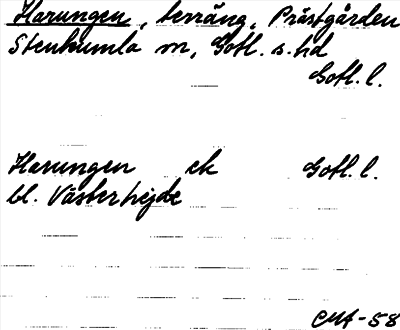 Harungen, terräng, Prästgården
Stenkumla sn, Gotl. s. hd
Gotl. l.
Harungen ek Gotl. l.
bl. Västerhejde
CMA-58